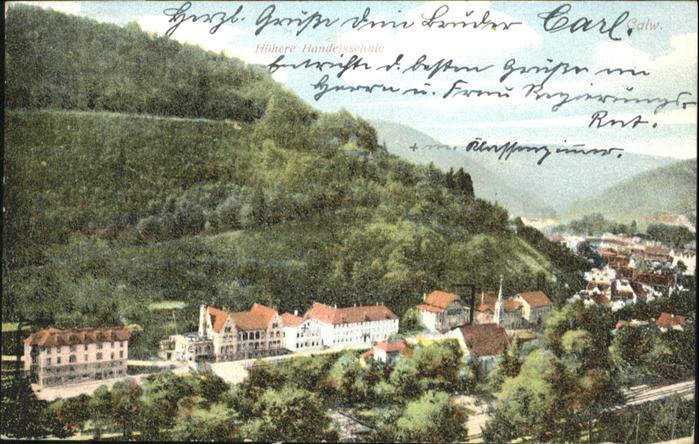 Herzl. Grüße Dein Bruder Carl.
Calw.
Höhere Handelsschule
Entrichte d. besten Grüße an
Herrn u. Frau Regierungs-
Rat.
+ m. Klassenzimmer.